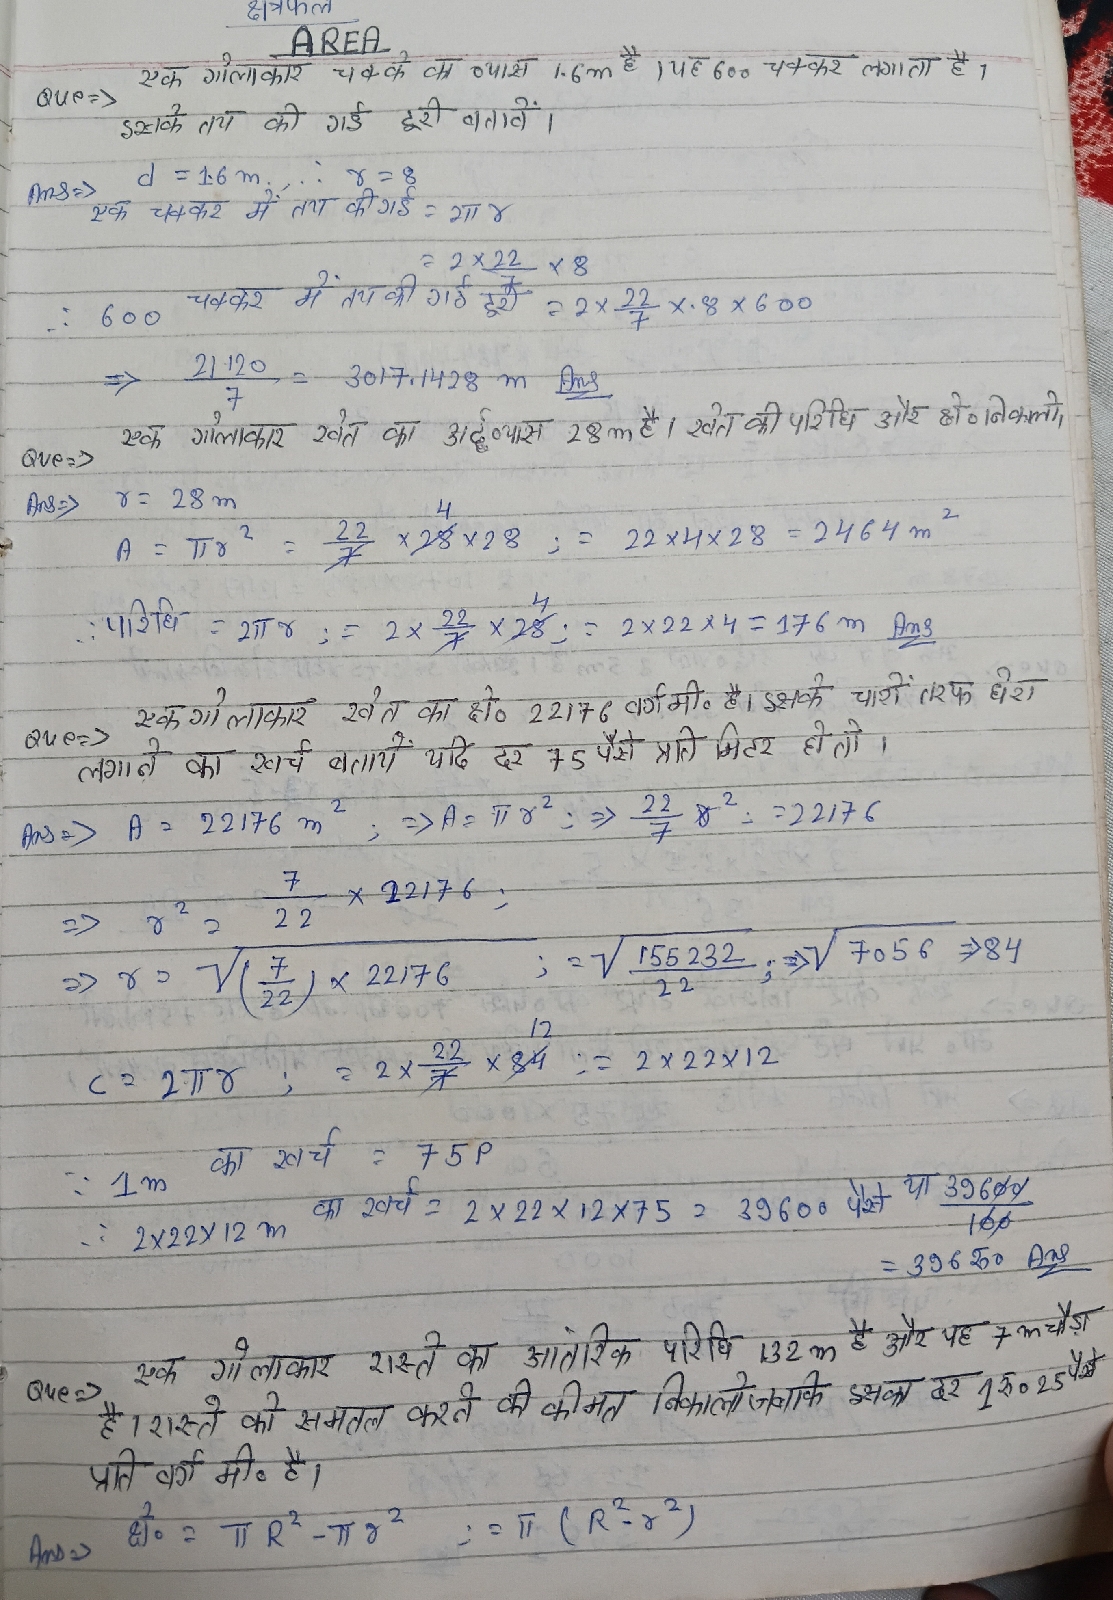 क्षेत्रफल
AREA
Que=> एक गोलाकार चक्के का व्यास 1.6m है । यह 600 चक्कर लगाता है ।
इसके तय की गई दूरी बतावें ।
Ans=> d = 1.6 m. ∴ r = 8
एक चक्कर में तय की गई = 2πr
= 2 × 22/7 × 8
∴ 600 चक्कर में तय की गई दूरी = 2 × 22/7 × .8 × 600
=> 21120/7 = 3017.1428 m Ans
Que=> एक गोलाकार खेत का अर्द्धव्यास 28m है । खेत की परिधि और क्षे० निकालो,
Ans=> r = 28 m
A = πr² = 22/7 × 28 × 28 ; = 22×4×28 = 2464 m²
4
∴ परिधि = 2πr ; = 2 × 22/7 × 28 ; = 2×22×4 = 176 m Ans
4
Que=> एक गोलाकार खेत का क्षे० 22176 वर्ग मी० है। इसके चारों तरफ घेरा
लगाने का खर्च बतायें यदि दर 75 पैसे प्रति मिटर हो तो ।
Ans=> A = 22176 m² ; => A = πr² ; => 22/7 r² ; = 22176
=> r² = 7/22 × 22176 ;
=> r = √(7/22) × 22176 ; = √155232/22 ; => √7056 => 84
C = 2πr ; = 2 × 22/7 × 84 ; = 2×22×12
12
∵ 1m का खर्च = 75P
∴ 2×22×12 m का खर्च = 2×22×12×75 = 39600 पैसे या 39600/100
= 396 रु० Ans
Que=> एक गोलाकार रास्ते का आंतरिक परिधि 132m है और यह 7 m चौड़ा
है । रास्ते को समतल करने की कीमत निकालो जबकि इसका दर 1 रु० 25 पैसे
प्रति वर्ग मी० है।
Ans=> क्षे०² = πR² - πr² ; = π (R² - r²)